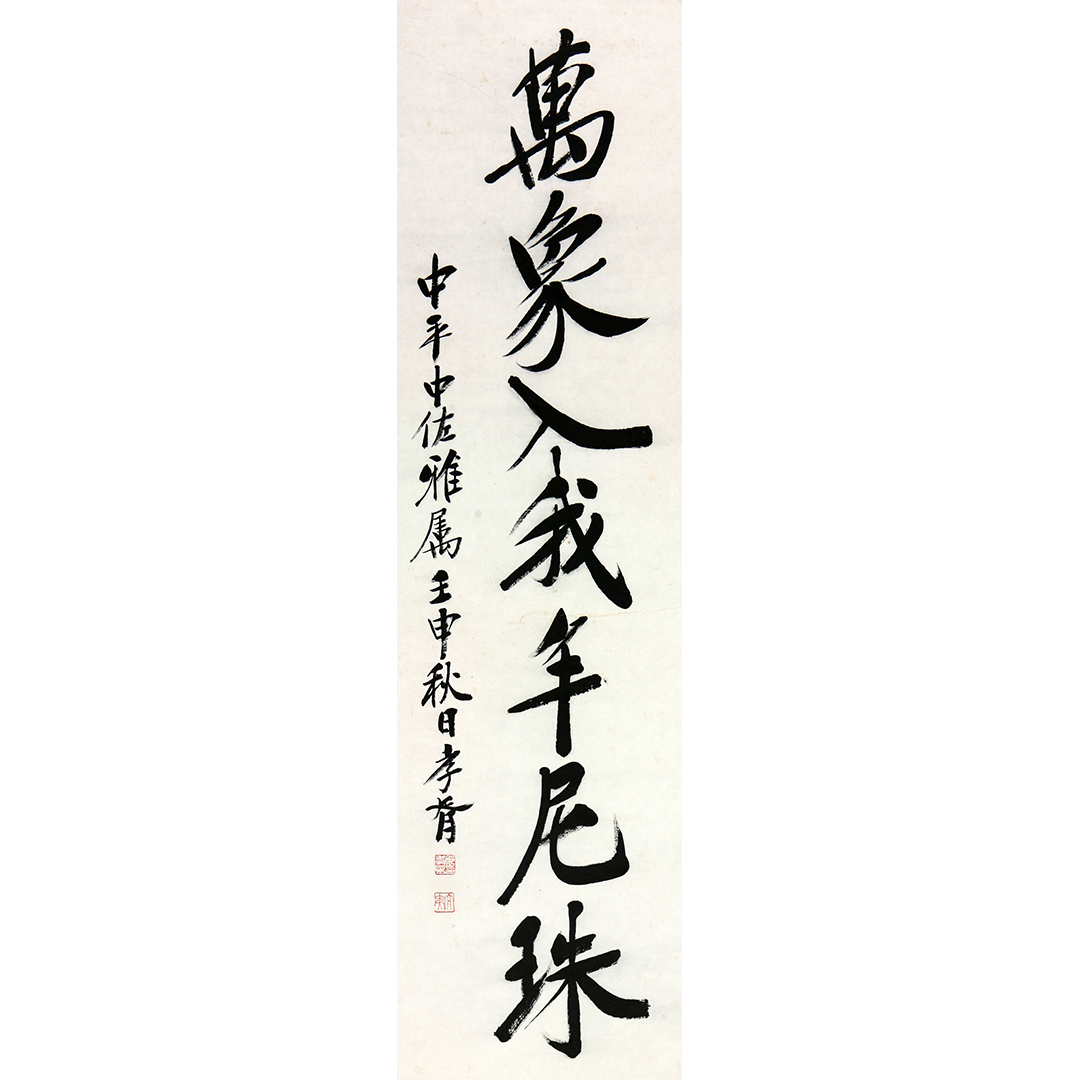 萬象入我牟尼珠
中平中佐雅属壬申秋日孝胥